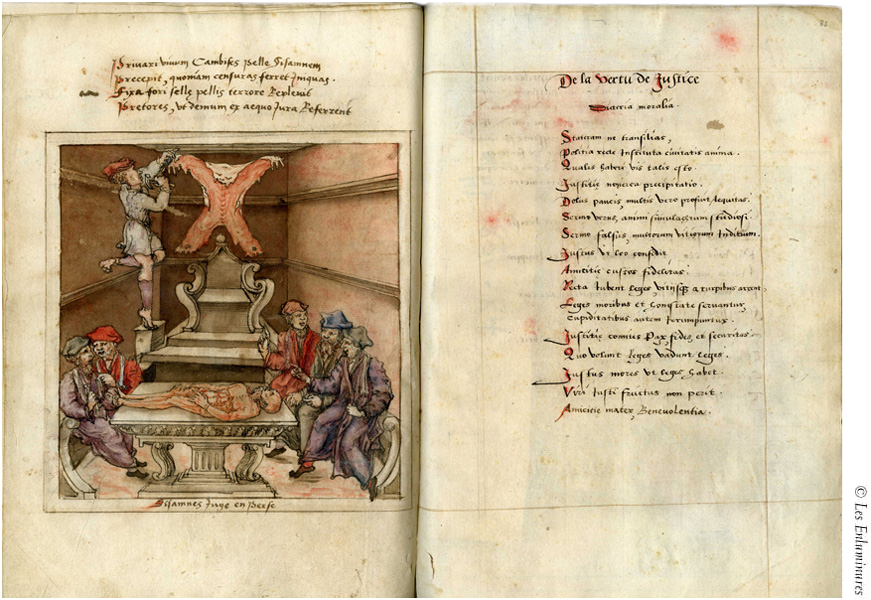 Privari vivum Cambises pelle Sisamnem
Precepit, quoniam censuras ferret Iniquas.
Fixa fori selle pellis terrore Replevit
Pretores, ut demum ex aequo Jura Referrent
Sisamnes Juge en Perse
82
De la vertu de Justice
moralia.
Stateram ne transilias,
Politia recte Instituta civitatis anima.
Qualis haberi vis talis esto.
Justitie noverca precipitatio.
Dolus paucis, multis vero prosunt Aequitas.
Sermo verus, animi simulachrum studiosi.
Sermo falsus, multorum vitiorum Inditium.
Justus ut leo confidit
Amicitie custos fidelitas.
Recta Iubent leges, a turpibus arcent,
Leges moribus et honestate servantur,
Cupiditatibus autem Rerumpuntur.
Justitie comites Pax, fides, et securitas.
Quo volunt Reges vadunt leges.
Justus mores ut leges habet.
Viri Iusti fructus non perit.
Amicitie mater, Benevolentia.
© Les Enluminures